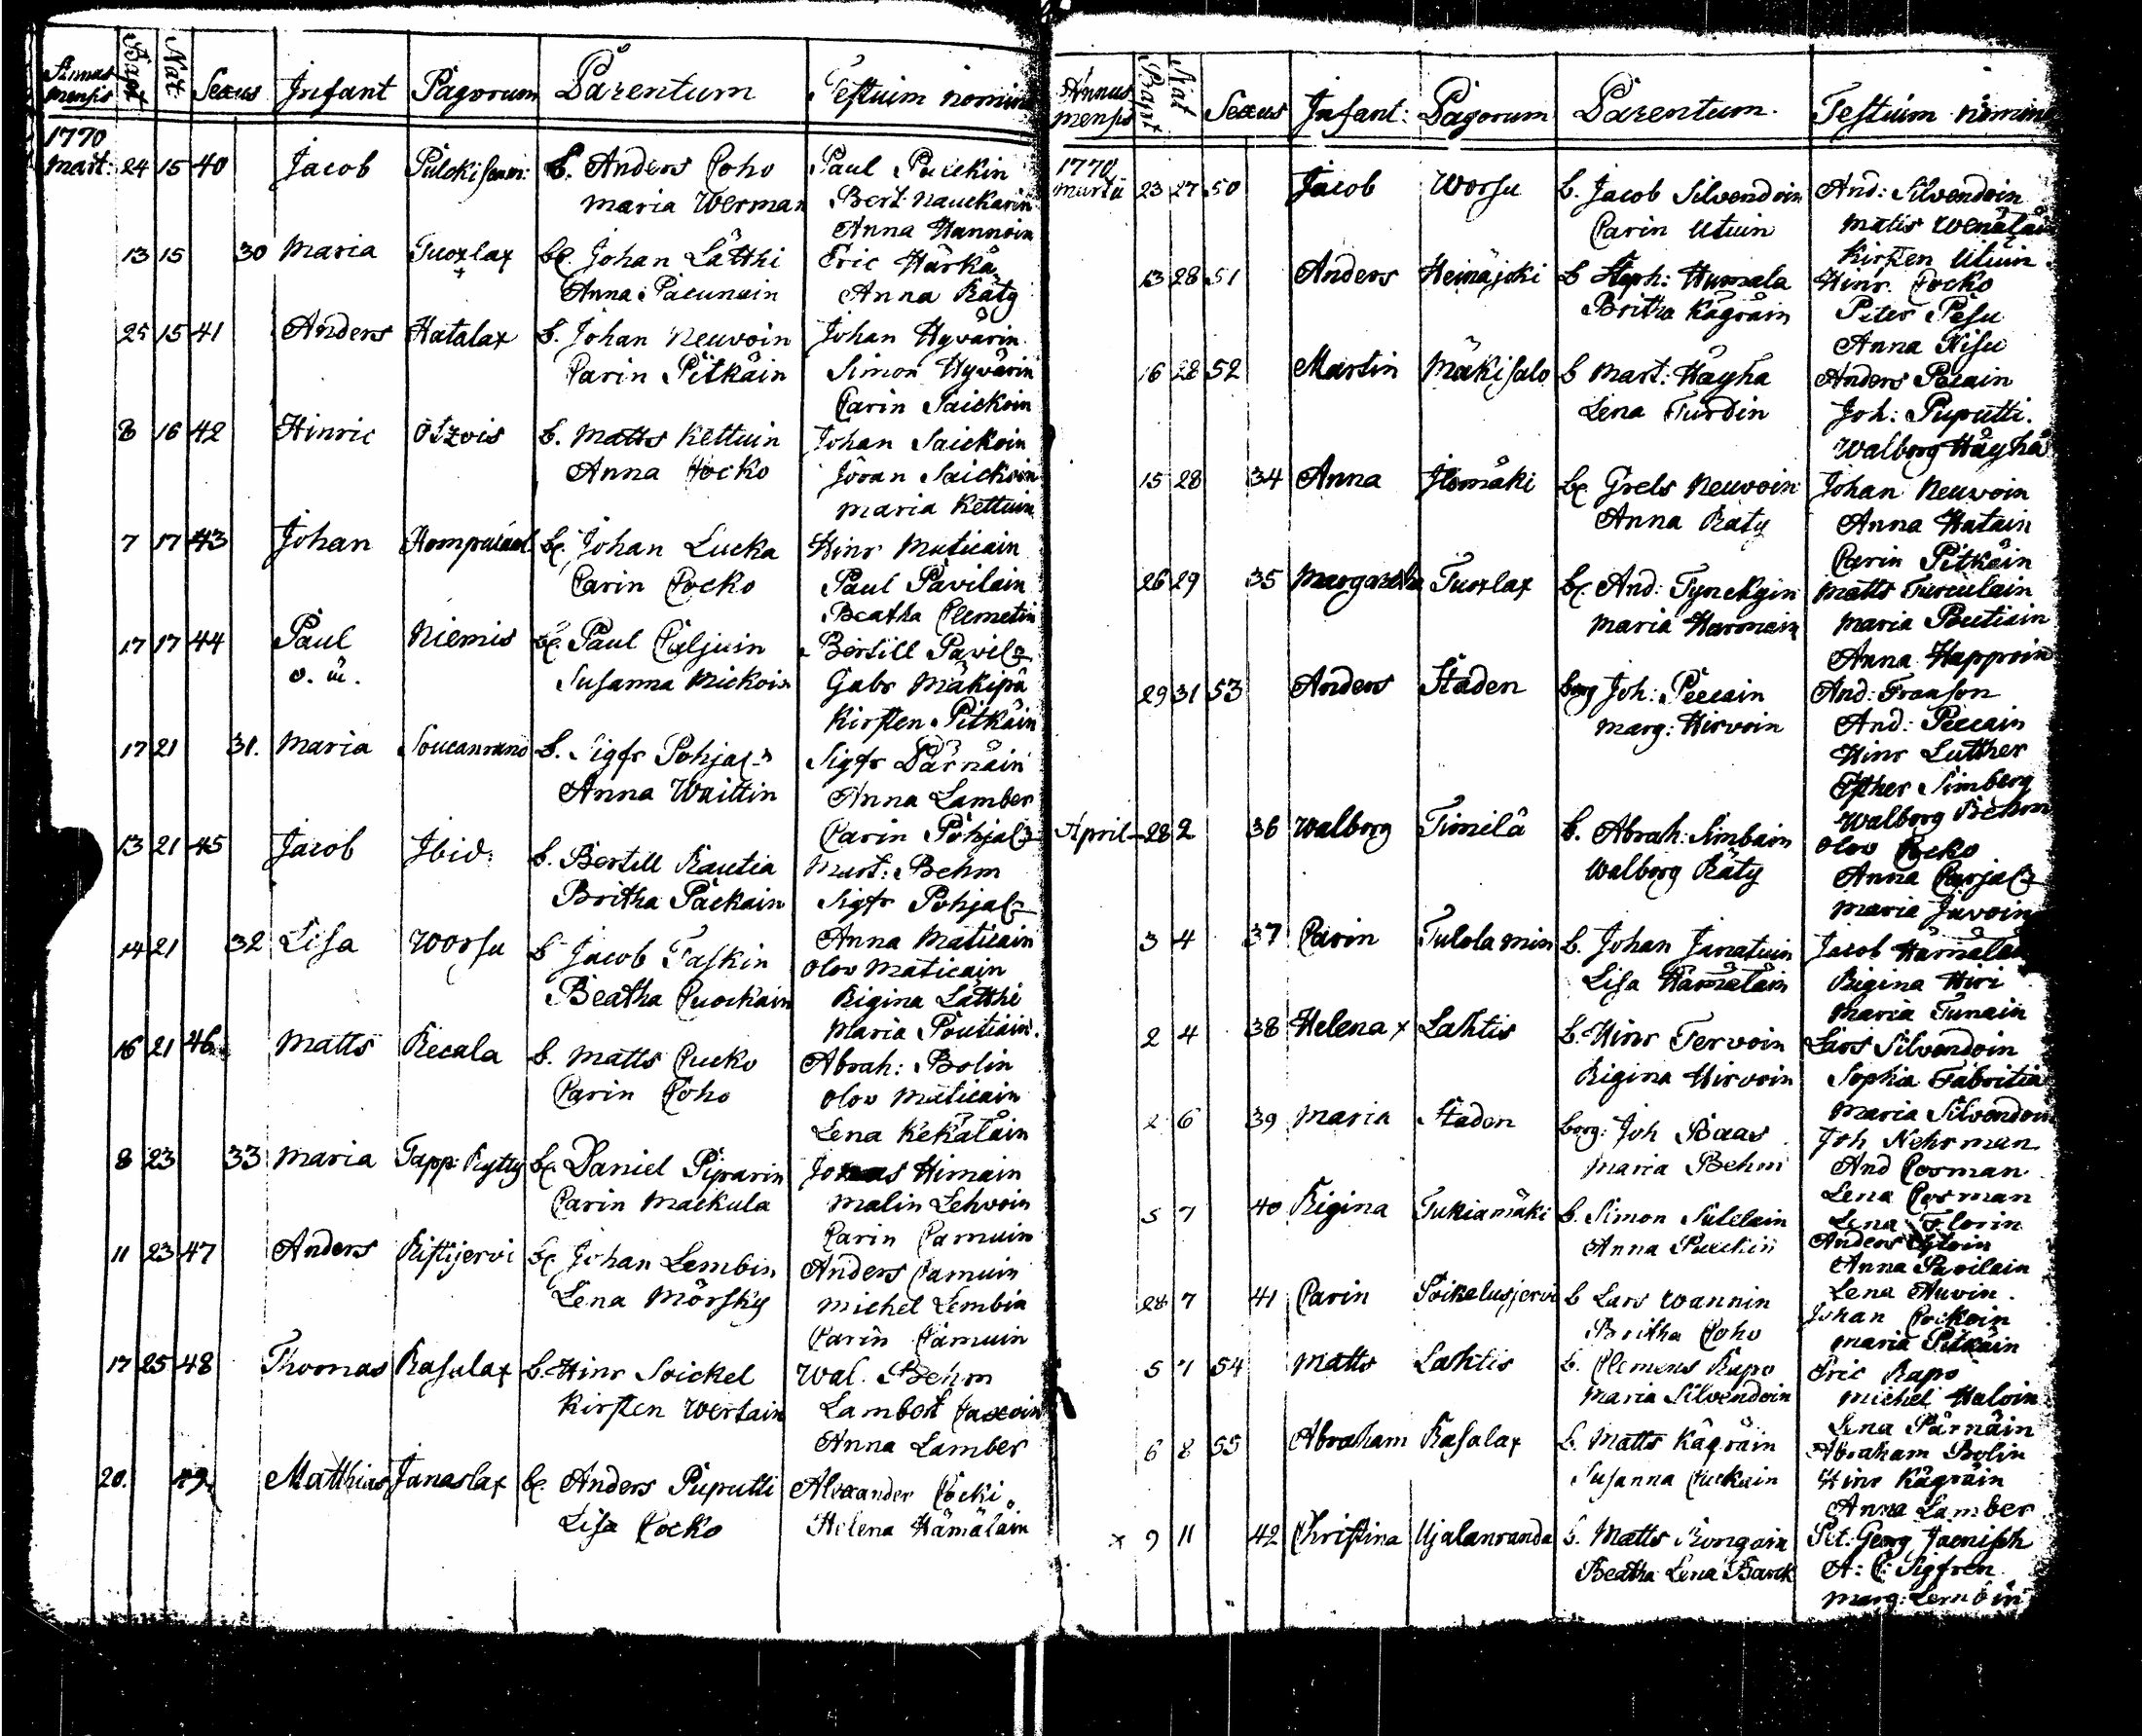 Annus mensis Bapt Nat: Sexus Infant Pagorum Parentum Testium nomin
1770
Mart: 24 15 40 Jacob Pulckisaari: b. Anders Coho Paul Puckin
Maria Werman Bert: Nauckarin
Anna Hannoin
13 15 30 Maria Tuorlax bf. Johan Lätthi Eric Härkä
Anna Paunuin Anna Räty
25 15 41 Anders Hatalax b. Johan Neuvoin Johan Hyvärin
Carin Pitkäin Simon Hyvärin
Carin Saickoin
8 16 42 Hinric b. Matts Kettuin Johan Saickoin
Anna Hocko Jöran Saickoin
Maria Kettuin
7 17 43 Johan bf. Johan Lucka Hinr Muticain
Carin Cocko Paul Pavilain
Beatha Clemetin
17 17 44 Paul Niemis bf. Paul Culjuin Bertill Pavil
o. ä. Susanna Mickoin Gabr Mäkipä
Kirsten Pitkäin
17 21 31. Maria Soucanrand b. Sigfr Pohjal Sigfr Pärnäin
Anna Waittin Anna Lamber
Carin Pohjal
13 21 45 Jacob Ibid: b. Bertill Rautia Mart: Behm
Britha Päckain Sigfr Pohjal
Anna Maticain
14 21 32 Lisa Worsu b Jacob Taskin Olov Maticain
Beatha Cuockain Rigina Lätthi
Maria Poutiain.
16 21 46 Matts Recala b. Matts Cucko Abrah: Bolin
Carin Coho Olov Maticain
Lena Kekäläin
8 23 33 Maria Tapp: Kytty bf. Daniel Piparin Jonas Himain
Carin Mackula Malin Lehvoin
Carin Camuin
11 23 47 Anders Ristijervi bf. Johan Lembin Anders Camuin
Lena Mörsky Michel Lembin
Carin Camuin
17 25 48 Thomas Rasalax b. Hinr Soickel Wal. Behm
Kirsten Wertain Lambert Caxoin
Anna Lamber
20. 49. Matthias Janaslax bf. Anders Puputti Alexander Cocki
Lisa Cocko Helena Hämäläin
Annus mensis Bapt Nat Sexus Infant: Pagorum Parentum. Testium nomin
1770
Martii 23 27 50 Jacob Worsu b. Jacob Silvendoin And: Silvendoin
Carin Utuin Matts Wenäläin
Kirsten Utuin
13 28 51 Anders Heinäjoki b Steph: Humala Hinr. Cocko
Britha Kägräin Peter Pesu
Anna Kisu
16 28 52 Martin Mäkisalo b Mart: Häyhä Anders Pecain
Lena Turdin Joh: Puputti.
Walborg Häyhä
15 28 34 Anna Ilomäki bf. Grels Neuvoin Johan Neuvoin
Anna Räty Anna Hatain
Carin Pitkäin
26 29 35 Margaretha Tuorlax bf. And: Tynckyin Matts Turculain
Maria Harmain Maria Poutiain
Anna Happoin
29 31 53 Anders Staden borg Joh: Peccain And: Franson
Marg: Hirvoin And: Peccain
Hinr Luther
Esther Simberg
Walborg Behm
April 28 2 36 Walborg Timilä b. Abrah: Simbain Olov Cocko
Walborg Räty Anna Carjal
Maria Juvoin
3 4 37 Carin Tulolamin b. Johan Janatuin Jacob Hämäläin
Lisa Hämäläin Rigina Hiri
Maria Tunain
2 4 38 Helena x Lahtis b. Hinr Tervoin Lars Silvendoin
Rigina Hirvoin Sophia Fabritia
Maria Silvendoin
2 6 39 Maria Staden borg: Joh Baas Joh Nehrman
Maria Behm And Cosman
Lena Cosman
Lena Florin
5 7 40 Rigina Tukiamäki b. Simon Sutelain Anders
Anna Puckin Anna Pavilain
Lena Auvin.
28 7 41 Carin Soikelusjervi b Lars Wannin Johan Cockoin
Britha Coho Maria Pitkäin
5 7 54 Matts Lahtis b. Clemens Rapo Eric Rapo
Maria Silvendoin Michel Haloin
Lena Pärnäin
6 8 55 Abraham Rasalax b. Matts Kägräin Abraham Bolin
Susanna Cuckain Hinr Kägräin
Anna Lamber
x 9 11 42 Christina Ujalanranda b. Matts Rongain Pet: Georg Jaenisch
Beatha Lena Barck A: C: Sigfren
Marg: Lemboin